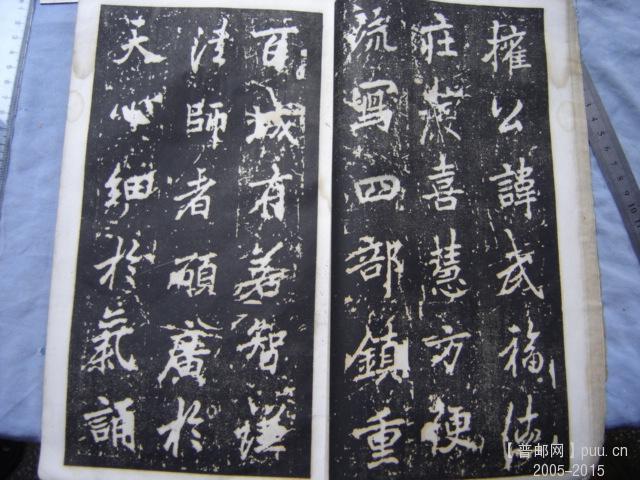 權公諱武福德
莊嚴喜慧方便
流寫四部鎮重
百城有若智謙
法師者願廣於
天心細於氣誦
【普邮网】puu.cn
2005-2015